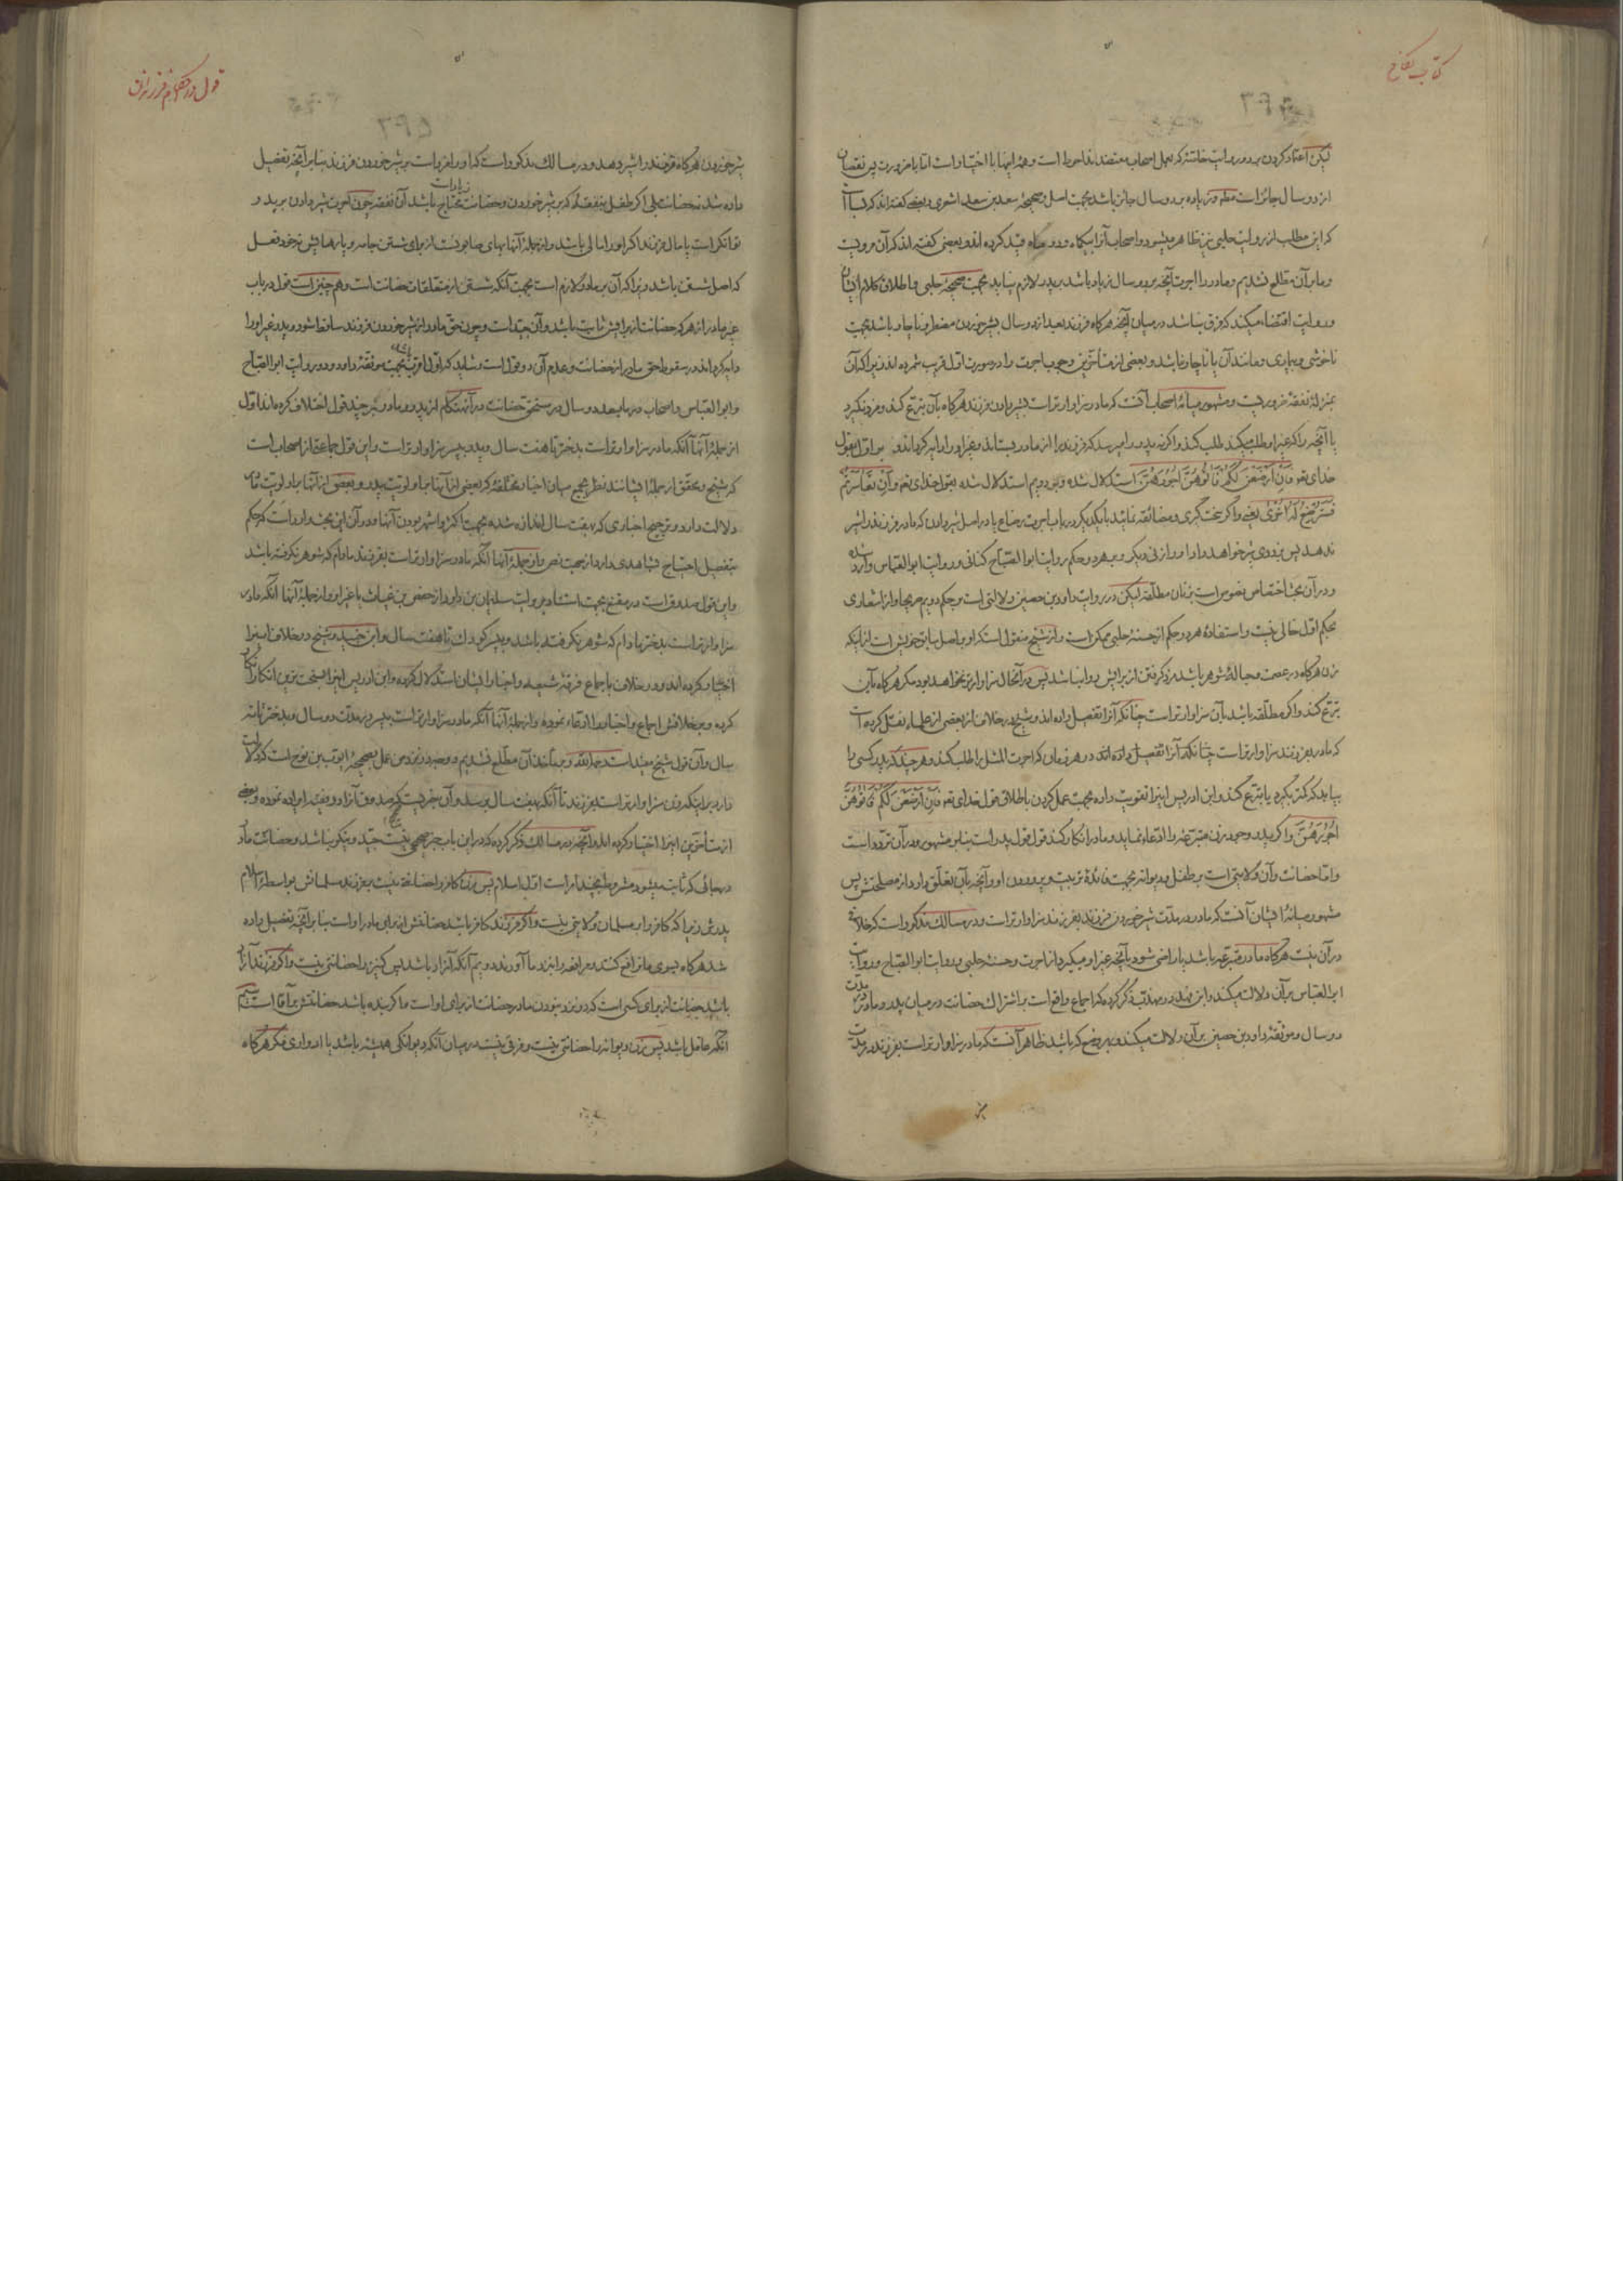 کتاب نکاح
لیکن اعتماد کردن بر دو روایت خاتمه که بعمل اصحاب معتضدند احوط است و همه اینها با اختیار است اما با ضرورت پس نقصان
از دو سال جائز است مطلقا و زیاده بر دو سال جائز باشد بجهت اصل و صحیحهٔ سعد بن سعد اشعری و بعضی گفته اند که
که این مطلب از روایت حلبی نیز ظاهر میشود و اصحاب آنرا بیکماه و دو ماه قید کرده اند و بعضی گفته اند که آن مرویست
و ما بر آن مطلع نشدیم و مادر را اجرت آنچه بر دو سال زیاد باشد بر پدر لازم نیاید بجهت صحیحهٔ حلبی و اطلاق کلام ایشان
و روایت اقتضاء میکند که فرق نباشد در میان آنچه هرگاه فرزند بعد از دو سال بشیر خوردن مضطر و ناچار باشد بجهت
ناخوشی و بیماری و مانند آن یا ناچار نباشد و بعضی از متأخرین وجوب اجرت را در صورت اول قریب شمرده اند زیرا که آن
بمنزلهٔ نفقهٔ ضروریست و مشهور میانهٔ اصحاب آنست که مادر سزاوارتر است بشیر دادن فرزند هرگاه بآن تبرع کند و مزد نگیرد
یا آنچه را که غیر او طلب میکند طلب کند و اگر نه پدر را میرسد که فرزند را از مادر بستاند و بغیر او را دایه گرداند و بر اول بقول
خدای تعم فَاِنْ اَرْضَعْنَ لَکُمْ فَاٰتُوهُنَّ اُجُورَهُنَّ استدلال شده و بر دویم استدلال شده بقول خدای تعم وَاِنْ تَعَاسَرْتُمْ
فَسَتُرْضِعُ لَهُ اُخْرٰی یعنی و اگر سخت گیری و مضائقه نمائید با یکدیگر در باب اجرت رضاع یا در اصل شیر دادن که مادر فرزند را شیر
ندهد پس بزودی شیر خواهد داد او را زنی دیگر و بر هر دو حکم روایت ابو الصباح کنانی و روایت ابو العباس وارد شده
و در آن بحث اختصاص نصوص است بزنان مطلّقه لیکن در روایت داود بن حصین دلالتی است بر حکم دویم صریحا و از اشعاری
بحکم اول خالی نیست و استفادهٔ هر دو حکم از حسنهٔ حلبی ممکن است و از شیخ منقول است که او بر اصل سابق خویش است از اینکه
زن هرگاه در عصمت و حبالهٔ شوهر باشد مزد گرفتن از برایش روا نباشد پس در آنحال سزاوارتر نخواهد بود مگر هرگاه بآن
تبرع کند و اگر مطلّقه باشد بآن سزاوارتر است چنانکه آنرا تفصیل داده اند و شیخ در خلاف از بعضی از علماء نقل کرده است
که مادر بفرزند سزاوارتر است چنانکه آنرا تفصیل داده اند در هر زمان که اجرت المثل را طلب کند و هر چند که پدر کسی را
بیابد که کمتر بگیرد یا تبرع کند و ابن ادریس اینرا تقویت داده بجهت عمل کردن باطلاق قول خدای تعم فَاِنْ اَرْضَعْنَ لَکُمْ فَاٰتُوهُنَّ
اُجُورَهُنَّ و اگر پدر وجود زن متبرعه را ادعاء نماید و مادر انکار کند قول قول پدر است بنا بر مشهور و در آن تردد است
و امّا حضانت و آن ولایتی است بر طفل و دیوانه بجهت فائدهٔ تربیت و پروردن او و آنچه بآن تعلّق دارد از مصلحتش پس
مشهور میانهٔ ایشان آنست که مادر در مدت شیر خوردن فرزند بفرزند سزاوارتر است و در مسالک مذکور است که خلافی
در آن نیست هرگاه مادر متبرعه باشد یا راضی شود بآنچه غیر او میگیرد از اجرت و حسنهٔ حلبی و روایت ابو الصباح و روایت
ابو العباس بر آن دلالت میکند و ابن فهد در مهذب ذکر کرده که اجماع واقع است بر اشتراک حضانت در میان پدر و مادر در مدت
دو سال و موثقهٔ داود بن حصین بر آن دلالت میکند و بهر وضع که باشد ظاهر آنست که مادر سزاوارتر است بفرزند در مدت
قول در احکام فرزندان
شیر خوردن هرگاه فرزند را شیر دهد و در مسالک مذکور است که او را مزد است بر شیر خوردن فرزند بنا بر آنچه تفصیل
داده شد نه حضانت بلی اگر طفل بنفقهٔ که بر شیر خوردن و حضانت زیاد است محتاج باشد آن نفقه چون اجرت شیر دادن بر پدر
توانگر است یا مال فرزند اگر او را مالی باشد و از جملهٔ آنها بهای صابونست از برای شستن جامه و پارهایش نه خود فعل
که اصل شستن باشد زیرا که آن بر مادر لازم است بجهت آنکه شستن از متعلقات حضانت است و هم چنین است قول در باب
غیر مادر از هر که حضانت از برایش ثابت باشد و آن جید است و چون حق مادر از شیر خوردن فرزند ساقط شود و پدر غیر او را
دایه گرداند در سقوط حق مادر از حضانت و عدم آن دو قول است و شاید که اول اقرب باشد بجهت موثقهٔ داود و دو روایت ابو الصباح
و ابو العباس و اصحاب در ما بعد دو سال در مستحق حضانت در آنهنگام از پدر و مادر بر چند قول اختلاف کرده اند اول
از جملهٔ آنها آنکه مادر سزاوارتر است بدختر تا هفت سال و پدر بپسر سزاوارتر است و این قول جماعتی از اصحاب است
که شیخ و محقق از جملهٔ ایشانند نظر بجمع میان اخبار مختلفه که بعضی از آنها بر اولویت پدر و بعضی از آنها بر اولویت مادر
دلالت دارد و ترجیح اخباری که بهفت سال اندازه شده بجهت اکثر و اشهر بودن آنها و در آن این بحث وارد است که حکم
بتفصیل احتیاج بشاهدی دارد از جهت نص و از جملهٔ آنها آنکه مادر سزاوارتر است بفرزند مادام که شوهر نگرفته باشد
و این قول صدوق است در مقنع بجهت استناد بروایت سلیمان بن داود از حفص بن غیاث یا غیر او و از جملهٔ آنها آنکه مادر
سزاوارتر است بدختر مادام که شوهر نگرفته باشد و بپسر کودک تا هفت سال و ابن جنید و شیخ در خلاف اینرا
اختیار کرده اند و در خلاف باجماع فرقهٔ شیعه و اخبار ایشان استدلال کرده و ابن ادریس اینرا بسخت ترین انکار انکار
کرده و بر خلافش اجماع و اخبار را ادعاء نموده و از جملهٔ آنها آنکه مادر سزاوارتر است بپسر در مدت دو سال و بدختر تا نه
سال و آن قول شیخ مفید است رحمه الله و بر مأخذ آن مطلع نشدیم و وجه در نزد من عمل بصحیحهٔ ایوب بن نوح است که دلالت
دارد بر اینکه زن سزاوارتر است بفرزند تا آنکه بهفت سال برسد و آن خبریست که صدوق آنرا در فقیه ایراد نموده و بعضی
از متأخرین اینرا اختیار کرده اند و آنچه در مسالک ذکر کرده که در این باب خبر صحیحی نیست جید و نیکو نباشد و حضانت مادر
در جائی که ثابت میشود مشروط بچند امر است اول اسلام پس زن کافره را حضانة نیست بفرزند مسلمانش بواسطهٔ اسلام
پدرش زیرا که کافر را بر مسلمان ولایتی نیست و اگر فرزند کافر باشد حضانتش از برای مادر او است بنا بر آنچه تفصیل داده
شد هرگاه بسوی ما ترافع کنند و مرافعه را بنزد ما آورند دویم آنکه آزاد باشد پس کنیز را حضانتی نیست و اگر فرزند آزاد
باشد حضانت از برای کسی است که در نزد نبودن مادر حضانت از برای او است و اگر بنده باشد حضانتش بر آقا است سیم
آنکه عاقل باشد پس زن دیوانه را حضانتی نیست و فرقی نیست در میان آنکه دیوانگی همیشه باشد یا ادواری مگر هرگاه